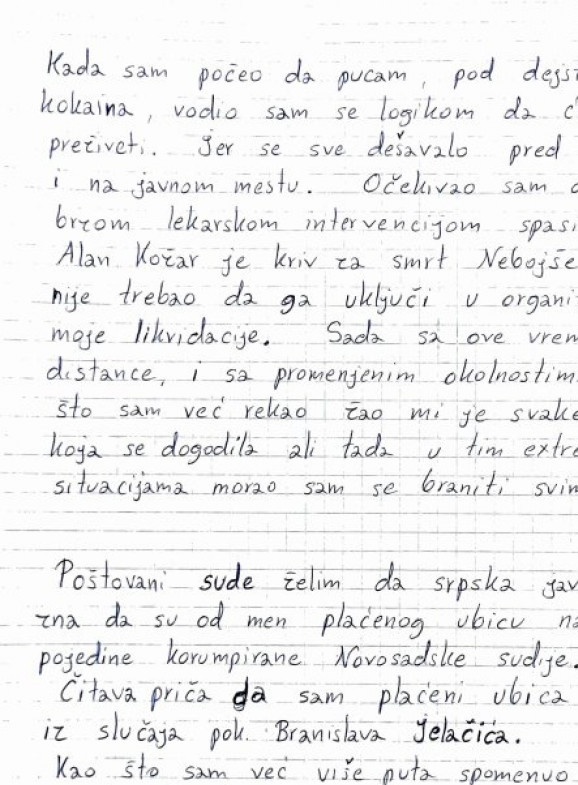 Kada sam počeo da pucam, pod dejs
kokaina, vodio sam se logikom da
preživeti. Jer se sve dešavalo pred
i na javnom mestu. Očekivao sam
brzom lekarskom intervencijom spasi
Alan Kožar je kriv za smrt Nebojše
nije trebao da ga uključi u organi
moje likvidacije. Sada sa ove vrem
distance, i sa promenjenim okolnostim
što sam već rekao žao mi je svake
koja se dogodila ali tada u tim extre
situacijama morao sam se braniti svim
Poštovani sude želim da srpska jav
zna da su od men plaćenog ubicu na
pojedine korumpirane Novosadske sudije.
Čitava priča da sam plaćeni ubica
iz slučaja pok. Branislava Jelačića.
Kao što sam već više puta spomenuo